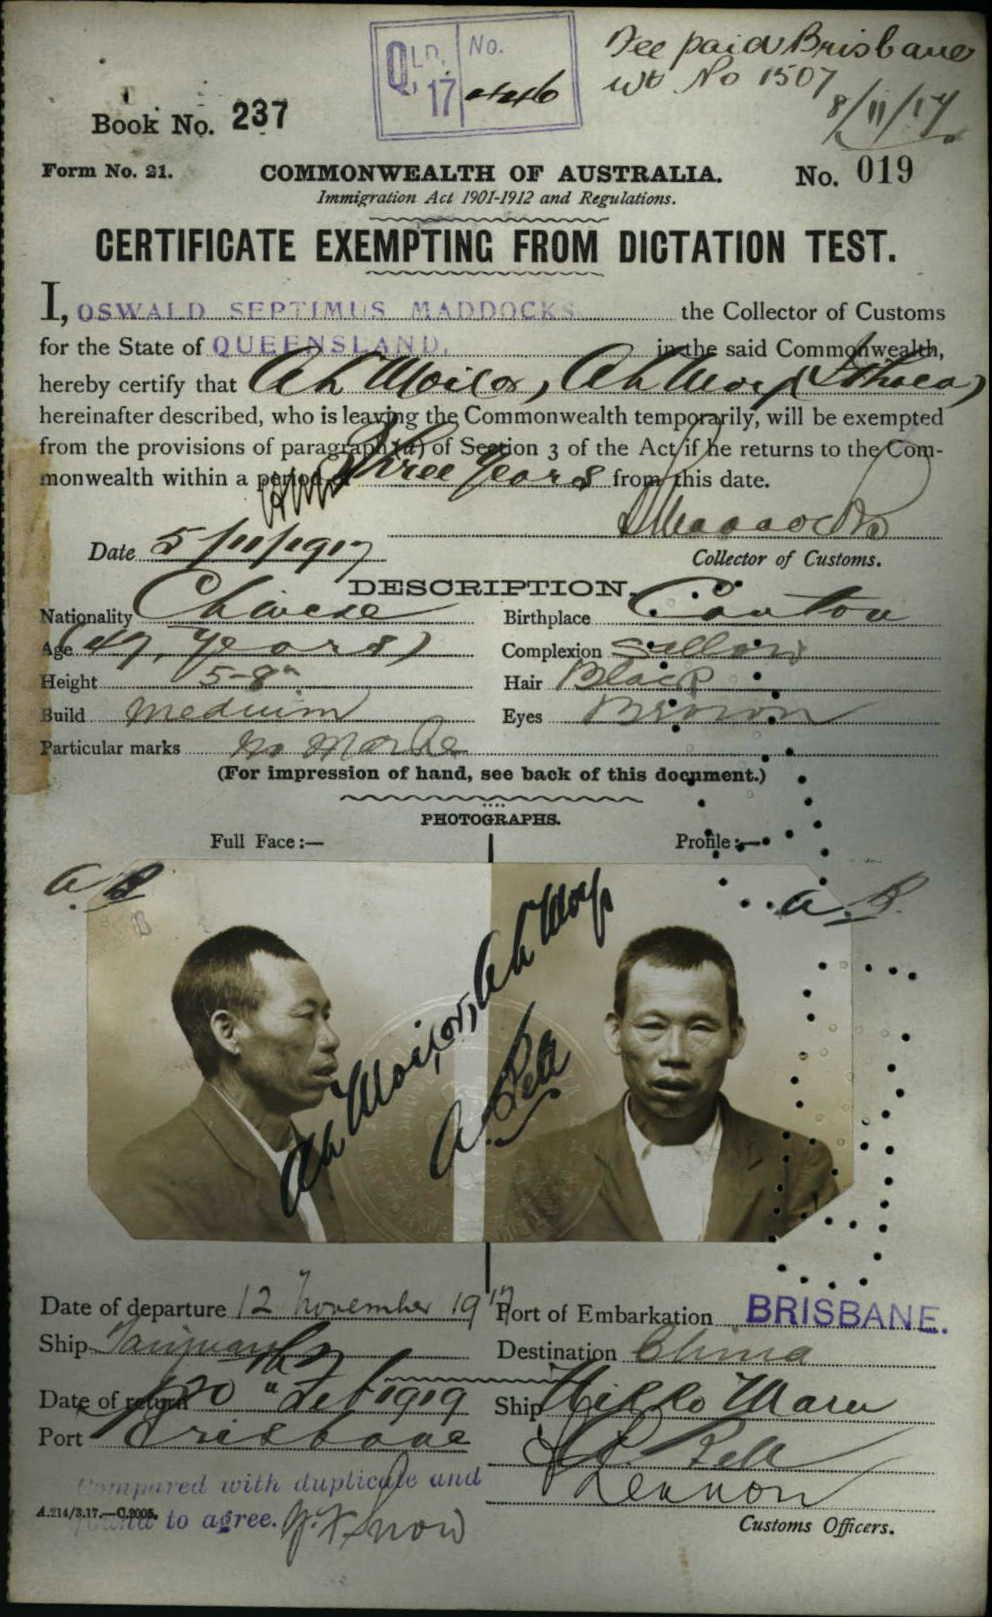 QLD. No.
17
Fee paid Brisbane
No 1507
8/11/17
Book No. 237
Form No. 21. COMMONWEALTH OF AUSTRALIA. No. 019
Immigration Act 1901-1912 and Regulations.
CERTIFICATE EXEMPTING FROM DICTATION TEST.
I, OSWALD SEPTIMUS MADDOCKS the Collector of Customs
for the State of QUEENSLAND, in the said Commonwealth,
hereby certify that Ah Moi, or, Ah Moy (Ithaca)
hereinafter described, who is leaving the Commonwealth temporarily, will be exempted
from the provisions of paragraph (a) of Section 3 of the Act if he returns to the Com-
monwealth within a period of Three Years from this date.
Date 5/11/1917 Collector of Customs.
DESCRIPTION.
Nationality Chinese Birthplace Canton
Age (47, Years) Complexion Sallow
Height 5-8" Hair Black
Build Medium Eyes Brown
Particular marks No Marks
(For impression of hand, see back of this document.)
PHOTOGRAPHS.
Full Face:— Profile:—
A.B A.B.
Ah Moi, or, Ah Moy
A. Bell
Date of departure 12 November 1917 Port of Embarkation BRISBANE.
Ship Taiyuan Destination China
Date of return 20" Feb 1919 Ship Nikko Maru
Port Brisbane Bell
Lennon
Compared with duplicate and
A.214/3.17.—C.2005. found to agree. Snow
Customs Officers.